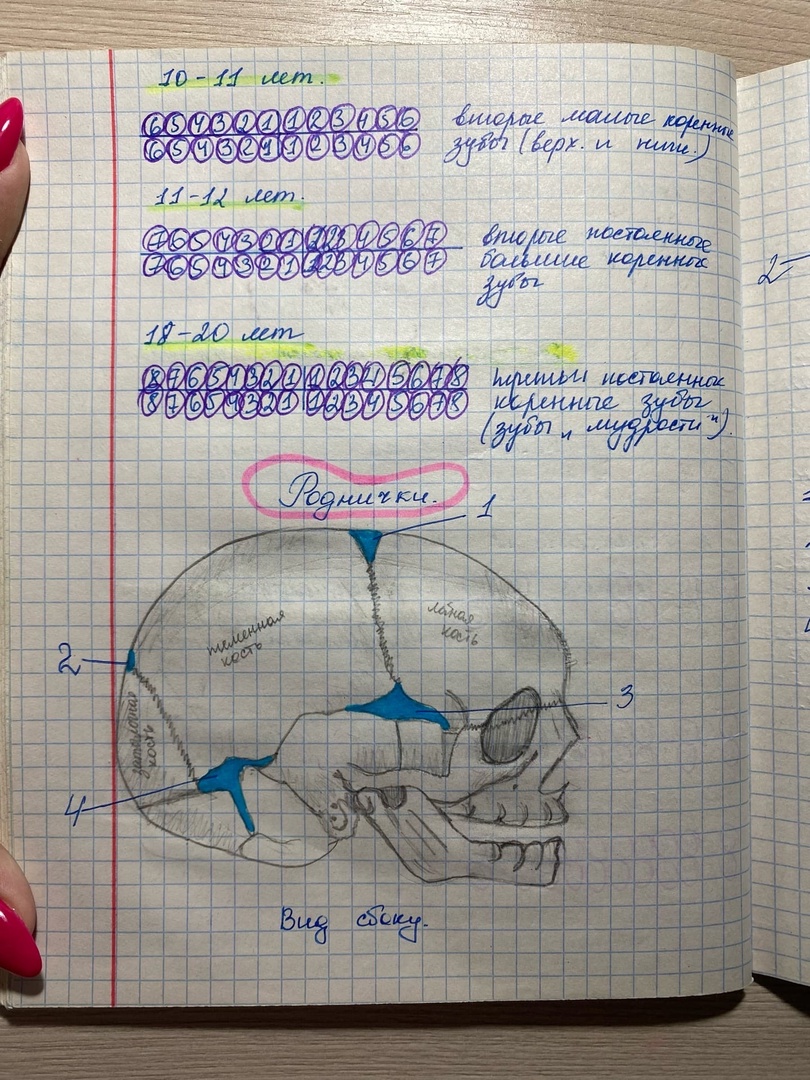 10-11 лет.
6 5 4 3 2 1 1 2 3 4 5 6 вторые малые коренные
6 5 4 3 2 1 1 2 3 4 5 6 зубы (верх. и нижн.)
11-12 лет.
7 6 5 4 3 2 1 1 2 3 4 5 6 7 вторые постоянные
7 6 5 4 3 2 1 1 2 3 4 5 6 7 большие коренные
зубы
18-20 лет
8 7 6 5 4 3 2 1 1 2 3 4 5 6 7 8 третьи постоянные
8 7 6 5 4 3 2 1 1 2 3 4 5 6 7 8 коренные зубы
(зубы „мудрости“).
Роднички.
1
теменная
кость
лобная
кость
2
затылочная
кость
3
4
Вид сбоку.
2